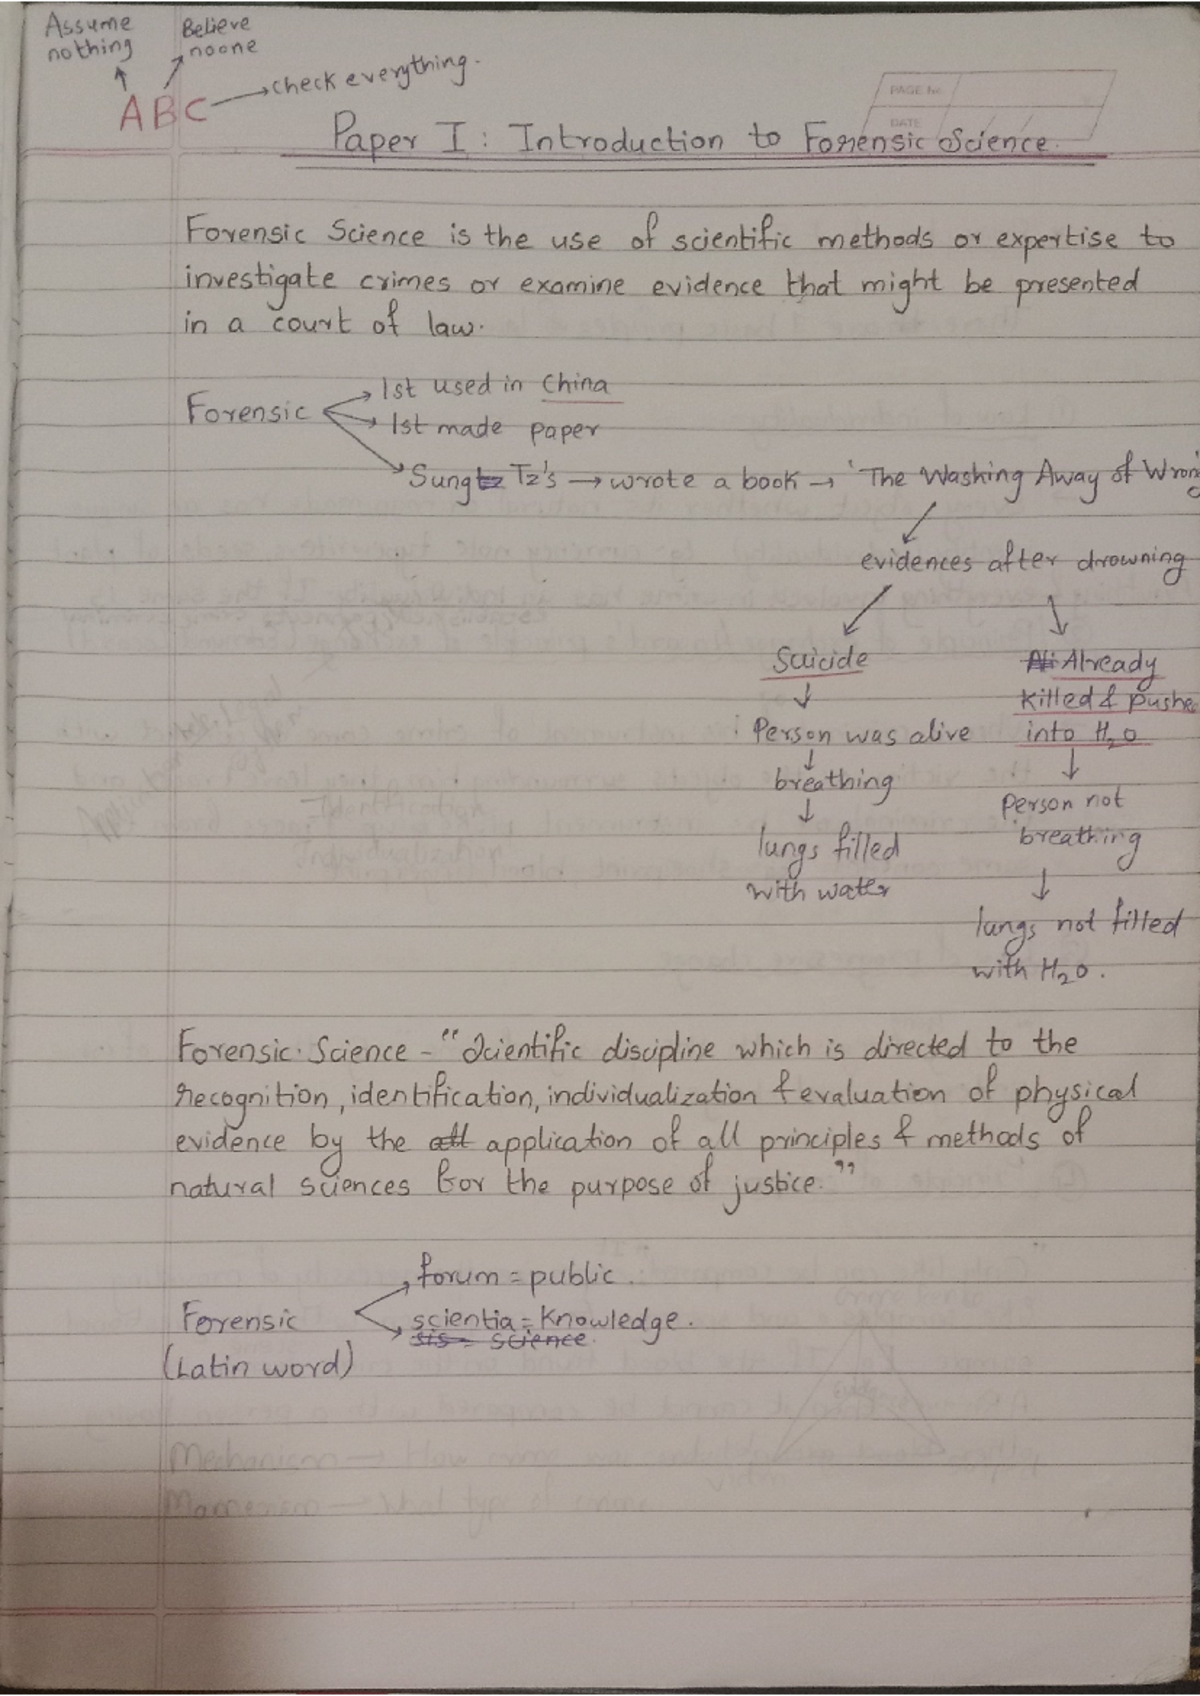 Assume
nothing
Believe
noone
ABC
check everything.
PAGE No.
DATE
Paper I : Introduction to Forensic Science.
Forensic Science is the use of scientific methods or expertise to
investigate crimes or examine evidence that might be presented
in a court of law.
Forensic
1st used in China
1st made paper
Sung Tz's → wrote a book → 'The Washing Away of Wrong
evidences after drowning
Suicide
Already
Killed & pushe
into H2O
Person was alive
breathing
lungs filled
with water
Person not
breathing
lungs not filled
with H2O.
Forensic Science - "Scientific discipline which is directed to the
recognition, identification, individualization & evaluation of physical
evidence by the all application of all principles & methods of
natural sciences for the purpose of justice."
forum = public.
Forensic
scientia = Knowledge.
sis = science.
(Latin word)